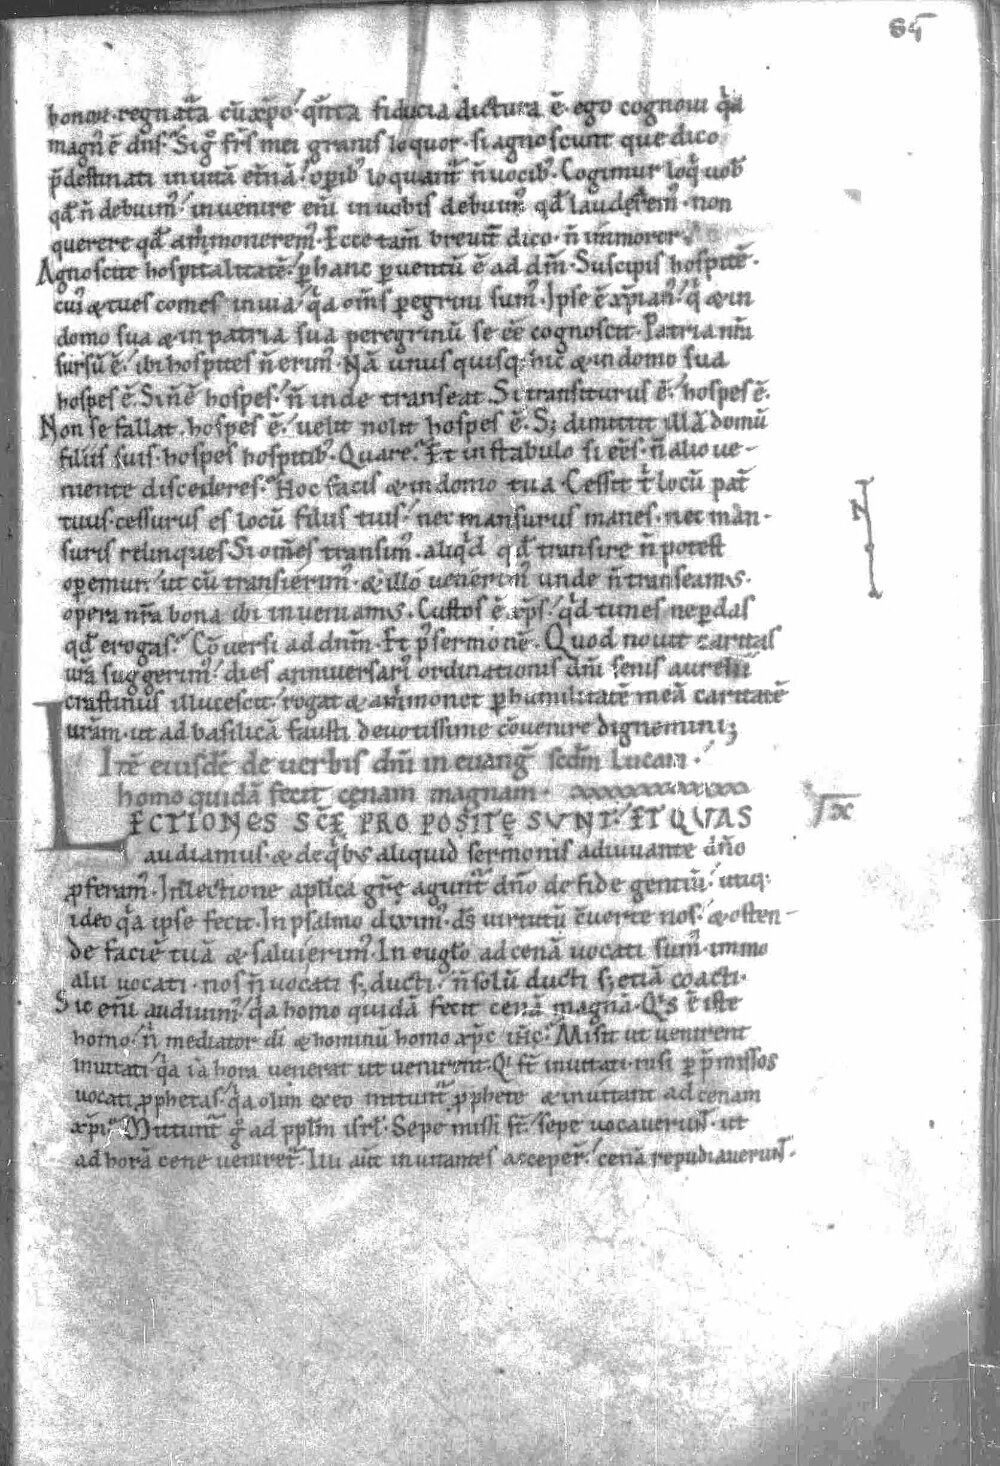 85
bonoꝝ · regnat̄a cū xp̄o · q̄nta fiducia dictura ē · ego cognoui q̄a
magn᷒ ē dn̄s · Sig̊ fr̄s mei granis loquor · si agnoscunt que dico
p̄destinati in uitā etn̄ā · op̄ib᷒ loquant᷑ n̄ uocib᷒ · Cogimur loq̄ uob̄
qd̄ n̄ debuim᷒ · inuenire em̄ in uobis debuim᷒ qd̄ laudarem᷒ · non
querere qd̄ am̄monerem᷒ · Ecce tam̄ breuit̄ dico · n̄ im̄moror
Agnoscite hospitalitatē · ꝑ hanc ꝑuentū ē ad dm̄ · Suscipis hospitē ·
cui᷒ & tu es comes in uia · q̄a om̄s peregrini sum᷒ · Ipse ē xp̄ian᷒ · q̄ & in
domo sua & in patria sua peregrinū se eē cognoscit · Patria nr̄a
sursū ē · ibi hospites n̄ erim᷒ · Nā unus quisq; hic & in domo sua
hospes ē · Si n̄ ē hospes · n̄ inde transeat Si transiturus ē · hospes ē ·
Non se fallat · hospes ē · uelit nolit hospes ē · S; dimittit illā domū
filiis suis · hospes hospitib᷒ · Quare · Et in stabulo si ees · n̄ alio ue-
niente discederes · Hoc facis & in domo tua · Cessit t̄ locū pat̄
tuus · cessurus es locū filiis tuis · nec mansurus manes · nec man-
suris relinques Si om̄es transim᷒ · aliq̄d qd̄ transire n̄ potest
operemur · ut cū transierim᷒ · & illo uenerim᷒ unde n̄ transeamus ·
opera nr̄a bona ibi inueniamus · Custos ē xp̄s · q̄d times ne ꝑdas
qd̄ erogas · Cōuersi ad dn̄m · Et p᷒ sermonē · Quod nouit caritas
ur̄a suggerim᷒ · dies anniuersari᷒ ordinationis dn̄i senis aurelii
crastinus illucescit · rogat & am̄monet ꝑ humilitatē meā caritatē
ur̄am · ut ad basilicā fausti deuotissime cōuenire dignemini;
Itē eiusdē de uerbis dn̄i in euanḡ scdm̄ Lucam ·
homo quidā fecit cenam magnam ·
LECTIONES SC̄Ę PROPOSITĘ SVNT · ET QVAS
audiamus · & de q̄bus aliquid sermonis adiuuante dn̄o
ꝓferam᷒ · In lectione aplica gr̄ę agunt᷑ dn̄o de fide gentiū · utiq;
ideo q̄a ipse fecit · In psalmo diximus · ds̄ uirtutū cōuerte nos · & osten-
de faciē tuā & salui erim᷒ · In eugl̄o ad cenā uocati sum᷒ · immo
alii uocati · nos n̄ uocati s; ducti · n̄ solū ducti s; etiā coacti ·
Sic em̄ audiuim᷒ · q̄a homo quidā fecit cenā magnā · Q̄s ē iste
homo · n̄ mediator di & hominū homo xp̄c ih̄c · Misit ut uenirent
inuitati · q̄a iā hora uenerat ut uenirent · Q̄ st̄ inuitati · nisi ꝑ p̄missos
uocati ꝓphetas · q̄a olim ex eo mittunt᷑ ꝓphete & inuitant ad cenam
xp̄i · Mittunt᷑ g̊ ad ppl̄m isrl̄ · Sepe missi st̄ · sepe uocauerunt · ut
ad horā cene uenirent · Illi aut̄ inuitantes acceper̄ · cenā repudiauerunt ·
N
IX